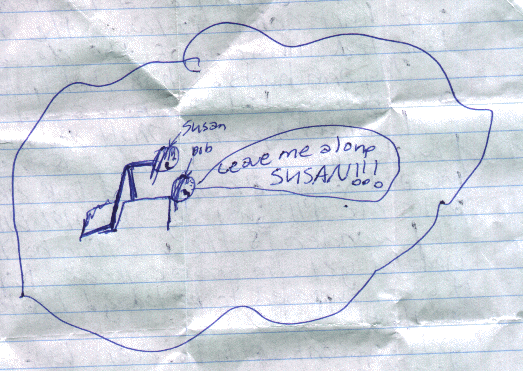 Susan
Bib
Leave me alone
SUSAN!!!